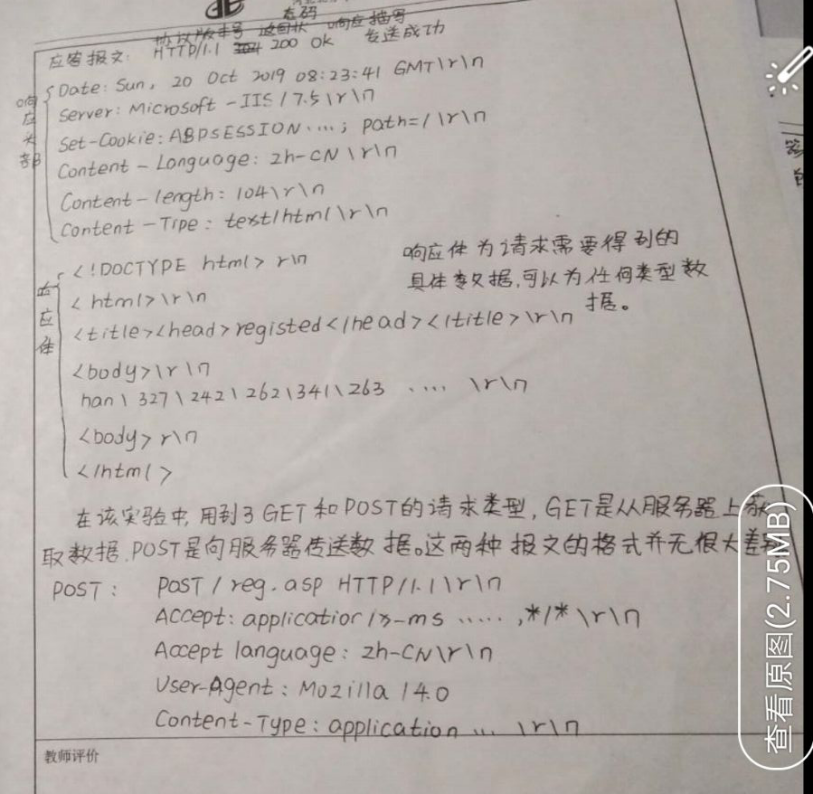 态码
协议/版本号 返回状 响应描写
应答报文: HTTP/1.1 200 OK 发送成功
响应头部
Date: Sun, 20 Oct 2019 08:23:41 GMT\r\n
Server: Microsoft-IIS/7.5\r\n
Set-Cookie: ABPSESSION....; path=/\r\n
Content-Language: zh-CN\r\n
Content-length: 104\r\n
Content-Tipe: text/html\r\n
响应体
<!DOCTYPE html> r\n
<html>\r\n
<title><head>registed</head></title>\r\n
<body>\r\n
han\327\242\262\341\263 .... \r\n
<body> r\n
</html>
响应体为请求需要得到的
具体数据,可以为任何类型数
据。
在该实验中,用到了GET和POST的请求类型,GET是从服务器上获
取数据.POST是向服务器传送数据。这两种报文的格式并无很大差
POST: POST / reg.asp HTTP/1.1\r\n
Accept: application/x-ms .....,*/*\r\n
Accept language: zh-CN\r\n
User-Agent: Mozilla/4.0
Content-Type: application ... \r\n
教师评价
查看原图(2.75MB)